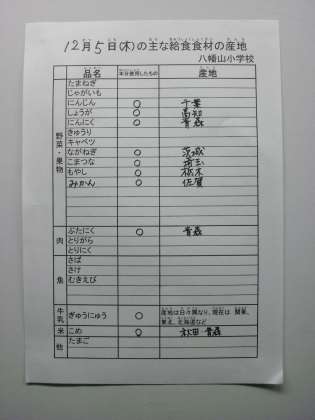 12月5日(木)の主な給食食材の産地
八幡山小学校
品名 本日使用したもの 産地
野菜・果物
たまねぎ
じゃがいも
にんじん ○ 千葉
しょうが ○ 高知
にんにく ○ 青森
きゅうり
キャベツ
ながねぎ ○ 茨城
こまつな ○ 埼玉
もやし ○ 栃木
みかん ○ 佐賀
肉
ぶたにく ○ 青森
とりがら
とりにく
魚
さば
さけ
むきえび
牛乳 ぎゅうにゅう ○ 産地は日々異なり、現在は 関東、
東北、北海道など
米 こめ ○ 秋田 青森
他 たまご